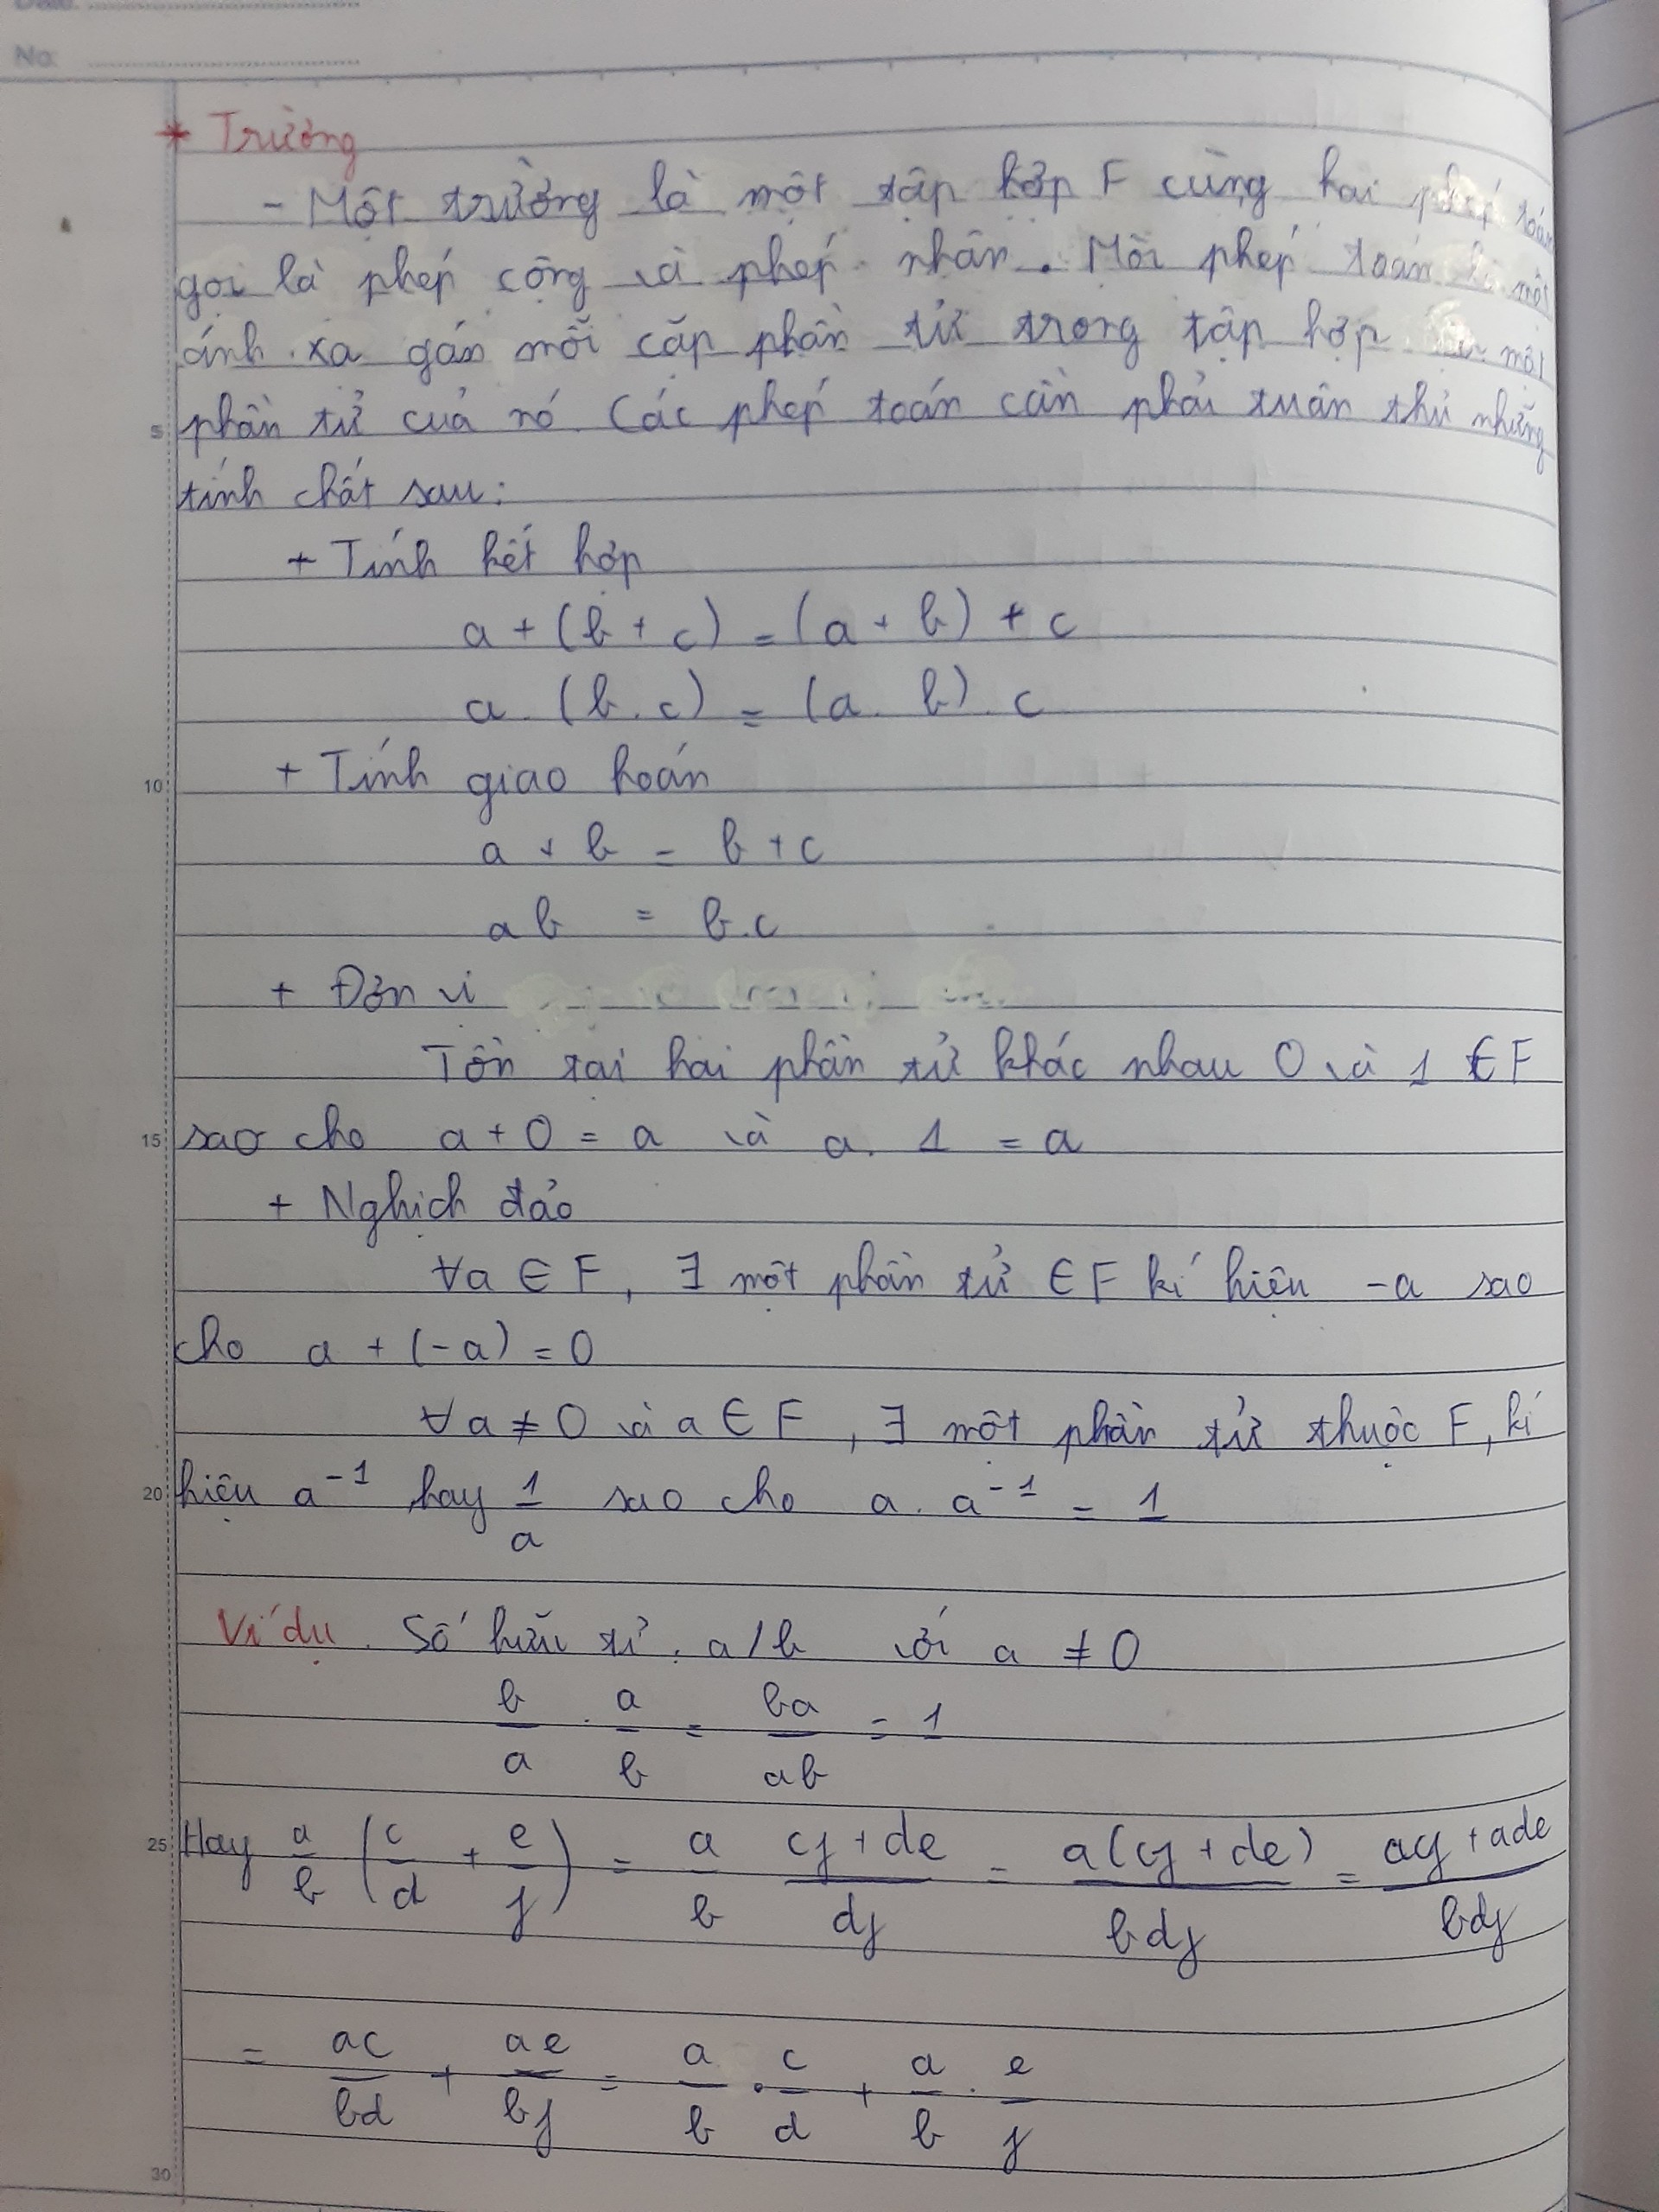 No:
* Trường
- Một trường là một tập hợp F cùng hai phép toán
gọi là phép cộng và phép nhân. Mỗi phép toán là một
ánh xạ gán mỗi cặp phần tử trong tập hợp một
5 phần tử của nó. Các phép toán cần phải tuân thủ những
tính chất sau:
+ Tính kết hợp
a + (b + c) = (a + b) + c
a . (b . c) = (a . b) . c
10 + Tính giao hoán
a + b = b + c
ab = b.c
+ Đơn vị
Tồn tại hai phần tử khác nhau 0 và 1 ∈ F
15 sao cho a + 0 = a và a . 1 = a
+ Nghịch đảo
∀a ∈ F, ∃ một phần tử ∈ F kí hiệu -a sao
cho a + (-a) = 0
∀a ≠ 0 và a ∈ F, ∃ một phần tử thuộc F, kí
20 hiệu a⁻¹ hay 1/a sao cho a . a⁻¹ = 1
Ví dụ. Số hữu tỉ: a/b với a ≠ 0
b/a . a/b = ba/ab = 1
25 Hay a/b (c/d + e/f) = a/b (cf + de)/df = a(cf + de)/bdf = (acf + ade)/bdf
= ac/bd + ae/bf = a/b . c/d + a/b . e/f
30